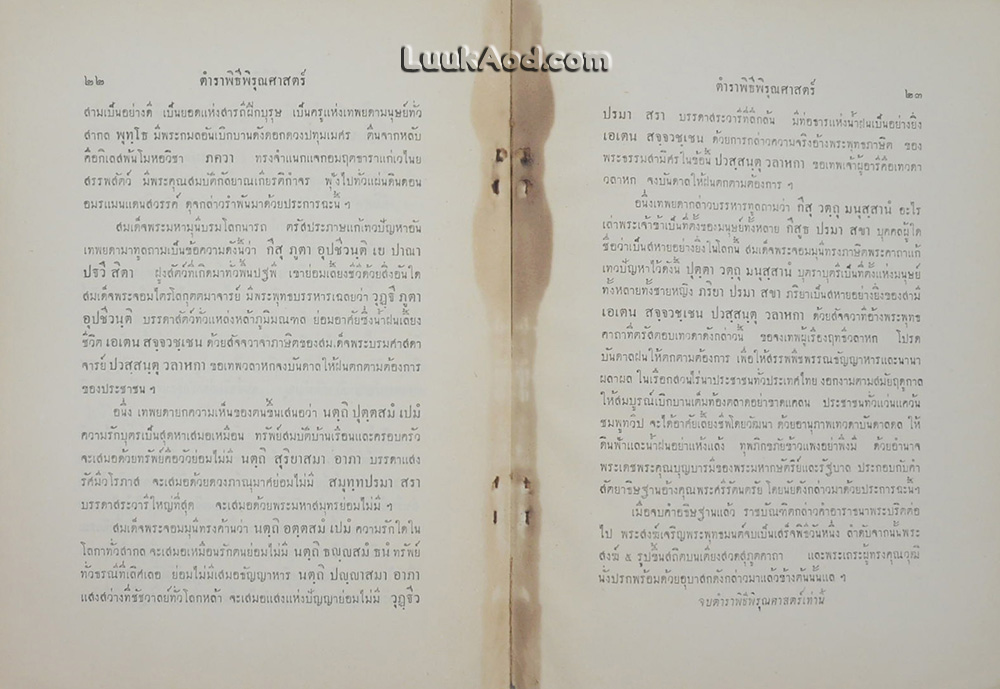 LuukAod.com
๒๒ ตำราพิธีพิรุณศาสตร์
สามเป็นอย่างดี เป็นยอดแห่งสารถีฝึกบุรุษ เป็นครูแห่งเทพยดามนุษย์ทั่ว
สากล พุทฺโธ มีพระกมลอันเบิกบานดังดอกดวงปทุมเมศร ตื่นจากหลับ
คือกิเลสพ้นโมหอวิชา ภควา ทรงจำแนกแจกอมฤตธาราแก่เวไนย
สรรพสัตว์ มีพระคุณสมบัติกัลยาณเกียรติกำจร ฟุ้งไปทั่วแผ่นดินดอน
อมรแมนแดนสวรรค์ ดุจกล่าวรำพันมาด้วยประการฉะนี้ ฯ
สมเด็จพระมหามุนีบรมโลกนารถ ตรัสประภาษแก้เทวปัญหาอัน
เทพยดามาทูลถามเป็นข้อความดังนี้ว่า กึสุ ภูตา อุปชีวนฺติ เย ปาณา
ปฐวึ สิตา ฝูงสัตว์ที่เกิดมาทั่วพื้นปฐพี เขาย่อมเลี้ยงชีวิตด้วยสิ่งอันใด
สมเด็จพระจอมไตรโลกุตตมาจารย์ มีพระพุทธบรรหารเฉลยว่า วุฏฺฐึ ภูตา
อุปชีวนฺติ บรรดาสัตว์ทั่วแหล่งหล้าภูมิมณฑล ย่อมอาศัยซึ่งน้ำฝนเลี้ยง
ชีวิต เอเตน สจฺจวชฺเชน ด้วยสัจจวาจาภาษิตของสมเด็จพระบรมศาสดา
จารย์ ปวสฺสนฺตุ วลาหกา ขอเทพวลาหกจงบันดาลให้ฝนตกตามต้องการ
ของประชาชน ฯ
อนึ่ง เทพยดายกความเห็นของตนขึ้นเสนอว่า นตฺถิ ปุตฺตสมํ เปมํ
ความรักบุตรเป็นสุดหาเสมอเหมือน ทรัพย์สมบัติบ้านเรือนและครอบครัว
จะเสมอด้วยทรัพย์คือวัวย่อมไม่มี นตฺถิ สุริยาสมา อาภา บรรดาแสง
รัศมีวโรภาส จะเสมอด้วยดวงภาณุมาศย่อมไม่มี สมุทฺทปรมา สรา
บรรดาสระวารีใหญ่ที่สุด จะเสมอด้วยพระมหาสมุทรย่อมไม่มี ฯ
สมเด็จพระจอมมุนีทรงค้านว่า นตฺถิ อตฺตสมํ เปมํ ความรักใดใน
โลกาทั่วสากล จะเสมอเหมือนรักตนย่อมไม่มี นตฺถิ ธญฺญสมํ ธนํ ทรัพย์
ทั่วธรณีที่เลิศเลอ ย่อมไม่มีเสมอธัญญาหาร นตฺถิ ปญฺญาสมา อาภา
แสงสว่างที่ชัชวาลย์ทั่วโลกหล้า จะเสมอแสงแห่งปัญญาย่อมไม่มี วุฏฺฐีว
ตำราพิธีพิรุณศาสตร์ ๒๓
ปรมา สรา บรรดาสระวารีที่ลึกล้น มีท่อธารแห่งน้ำฝนเป็นอย่างยิ่ง
เอเตน สจฺจวชฺเชน ด้วยการกล่าวความจริงอ้างพระพุทธภาษิต ของ
พระธรรมสามิศรในข้อนี้ ปวสฺสนฺตุ วลาหกา ขอเทพเจ้าผู้อารีคือเทวดา
วลาหก จงบันดาลให้ฝนตกตามต้องการ ฯ
อนึ่งเทพยดากล่าวบรรหารทูลถามว่า กึสุ วตฺถุ มนุสฺสานํ อะไร
เล่าพระเจ้าข้าเป็นที่ตั้งของมนุษย์ทั้งหลาย กึสูธ ปรมา สขา บุคคลผู้ใด
ชื่อว่าเป็นสหายอย่างยิ่งในโลกนี้ สมเด็จพระจอมมุนีทรงภาษิตพระคาถาแก้
เทวปัญหาไว้ดังนี้ ปุตฺตา วตฺถุ มนุสฺสานํ บุตราบุตรีเป็นที่ตั้งแห่งมนุษย์
ทั้งหลายทั้งชายหญิง ภริยา ปรมา สขา ภริยาเป็นสหายอย่างยิ่งของสามี
เอเตน สจฺจวชฺเชน ปวสฺสนฺตุ วลาหกา ด้วยสัจจวาทีอ้างพระพุทธ
คาถาที่ตรัสตอบเทวดาดังกล่าวนี้ ขอจงเทพผู้เรืองฤทธิ์วลาหก โปรด
บันดาลฝนให้ตกตามต้องการ เพื่อให้สรรพพืชพรรณธัญญาหารและนานา
ผลาผล ในเรือกสวนไร่นาประชาชนทั่วประเทศไทย งอกงามตามสมัยฤดูกาล
ให้สมบูรณ์เบิกบานเต็มท้องตลาดอย่าขาดแคลน ประชาชนทั่วแว่นแคว้น
ชมพูทวีป จะได้อาศัยเลี้ยงชีพโดยวัฒนา ด้วยอานุภาพเทวดาบันดาลดล ให้
ดินฟ้าและน้ำฝนอย่าแห้งแล้ง ทุพภิกขภัยข้าวแพงอย่าพึงมี ด้วยอำนาจ
พระเดชพระคุณบุญบารมีของพระมหากษัตริย์และรัฐบาล ประกอบกับคำ
สัตยาธิษฐานอ้างคุณพระศรีรัตนตรัย โดยนัยดังกล่าวมาด้วยประการฉะนี้ฯ
เมื่อจบคำอธิษฐานแล้ว ราชบัณฑิตกล่าวคำอาราธนาพระปริตต่อ
ไป พระสงฆ์เจริญพระพุทธมนต์จบเป็นเสร็จพิธีวันหนึ่ง ลำดับจากนั้นพระ
สงฆ์ ๕ รูปขึ้นสถิตบนเตียงสวดสุภูตคาถา และพระเถรผู้ทรงคุณวุฒิ
นั่งปรกพร้อมด้วยอุบาสกดังกล่าวมาแล้วข้างต้นนั้นแล ฯ
จบตำราพิธีพิรุณศาสตร์เท่านี้